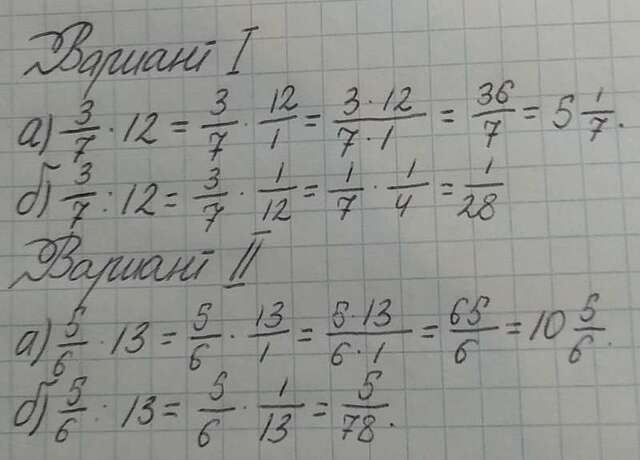 Вариант I
а) 3/7 · 12 = 3/7 · 12/1 = 3·12/7·1 = 36/7 = 5 1/7.
б) 3/7 : 12 = 3/7 · 1/12 = 1/7 · 1/4 = 1/28
Вариант II
а) 5/6 · 13 = 5/6 · 13/1 = 5·13/6·1 = 65/6 = 10 5/6.
б) 5/6 : 13 = 5/6 · 1/13 = 5/78.